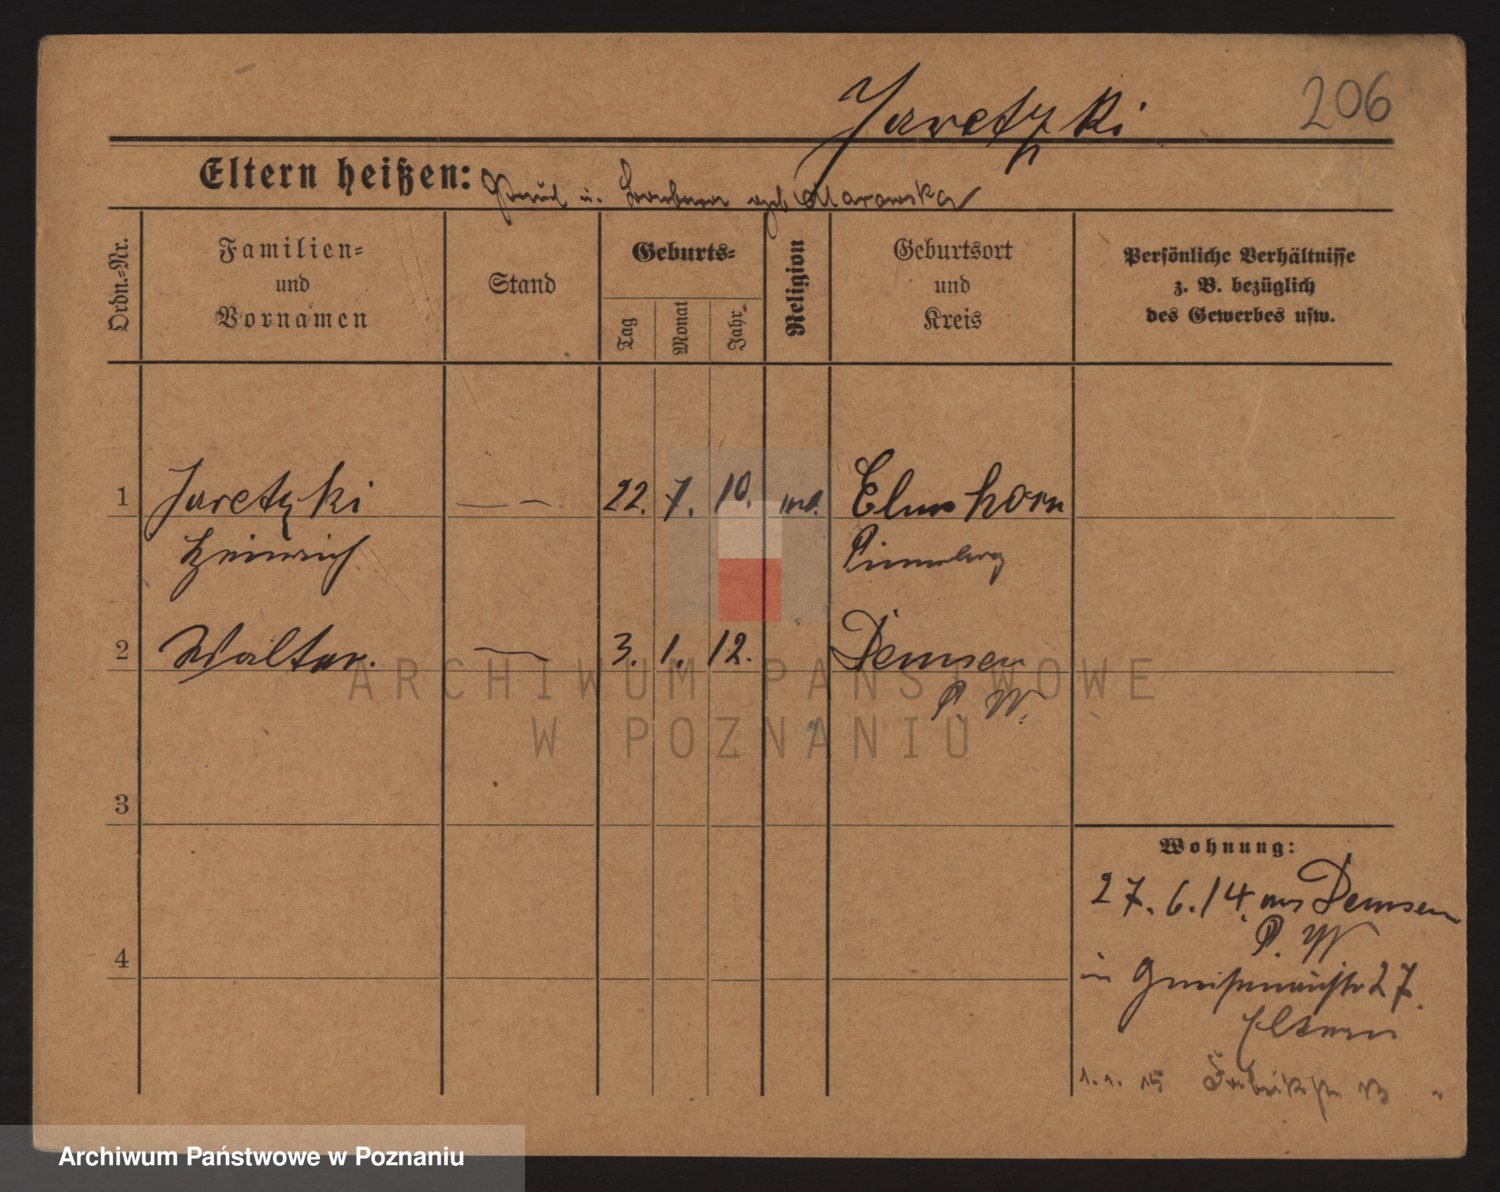 Jaretzki
206
Eltern heißen: Paul u. Barbara geb. Marowska
Ordn.-Nr.
Familien-
und
Vornamen
Stand
Geburts-
Tag
Monat
Jahr
Religion
Geburtsort
und
Kreis
Persönliche Verhältnisse
z. B. bezüglich
des Gewerbes usw.
1 Jaretzki — — 22. 7. 10. Elmshorn
Heinrich Pinneberg
2 Walter. — 3. 1. 12. Demsen
P. W.
3
4
Wohnung:
27. 6. 14. aus Demsen
P. W
in Gneisenaustr 27.
Eltern
1. 1. 15 Fabrikstr 13
ARCHIWUM PAŃSTWOWE
W POZNANIU
Archiwum Państwowe w Poznaniu